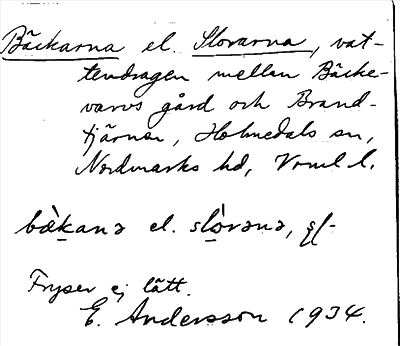 Bäckarna el. Slorarna, vat-
tendragen mellan Bäcke-
varvs gård och Brand-
tjärnen, Holmedals sn,
Nordmarks hd, Vrml l.
bæ̀kanə el. slòranə, pl.
Fryser ej lätt.
E. Andersson 1934.